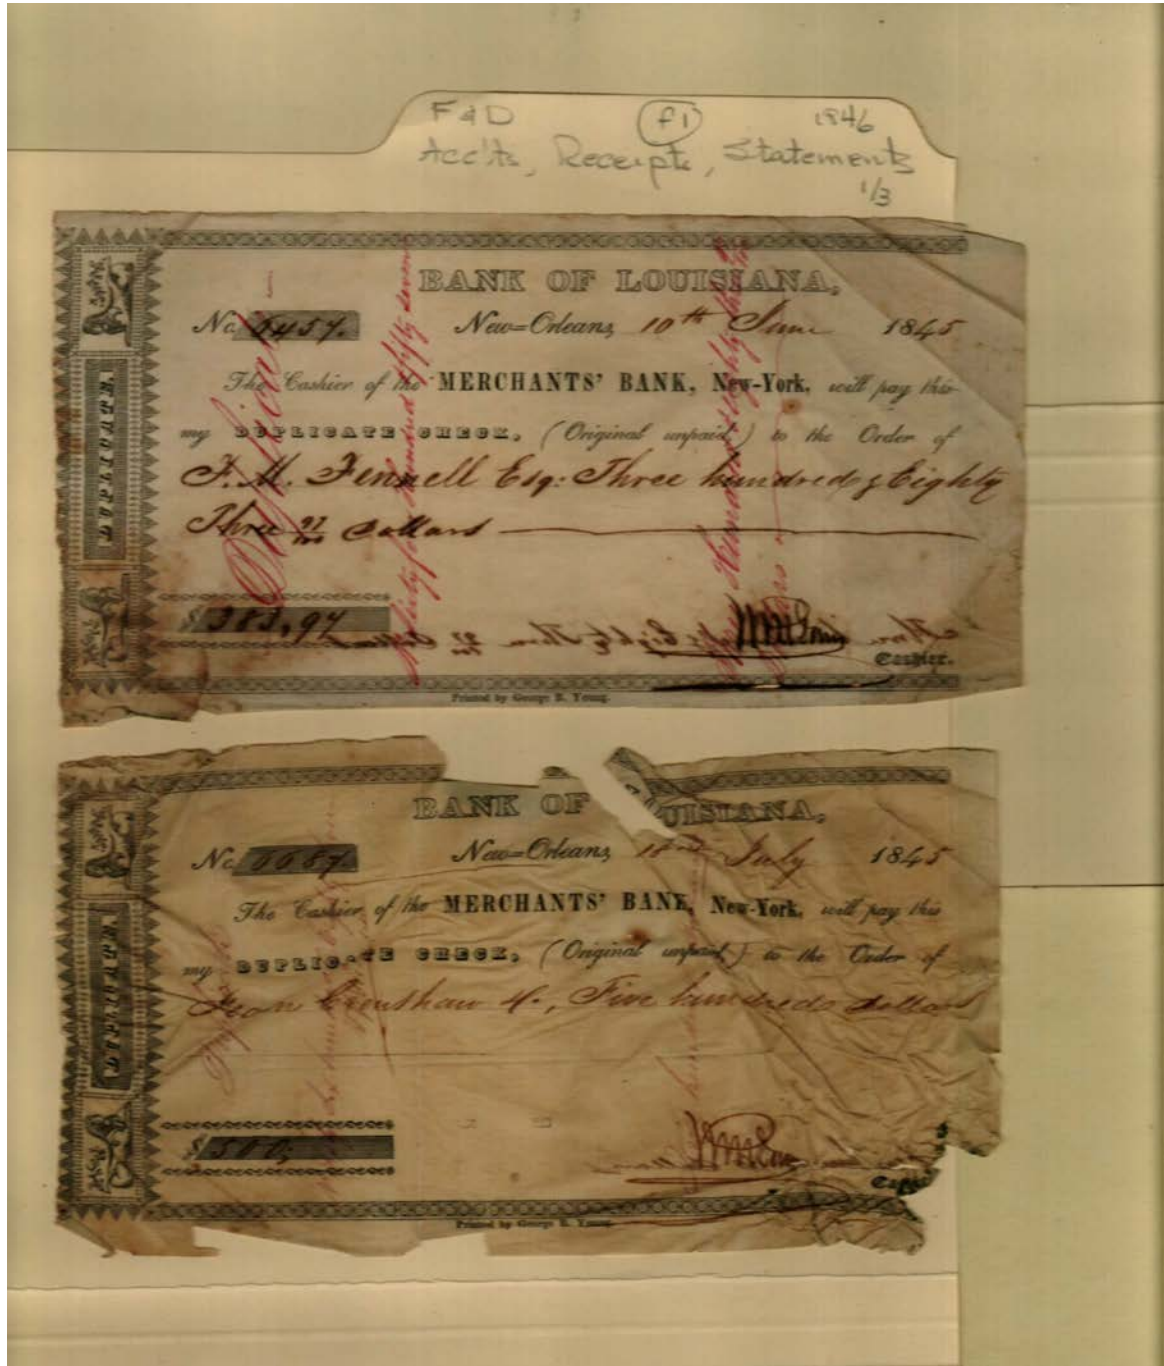 F & D f1 1846
Acc'ts, Receipts, Statements
1/3
BANK OF LOUISIANA,
No. 6457. New=Orleans, 10th June 1845
The Cashier of the MERCHANTS' BANK, New-York, will pay this
my DUPLICATE CHECK, (Original unpaid) to the Order of
F. M. Fennell Esq: Three hundred & Eighty
Three 97/100 Dollars
$ 383,97
Cashier.
Printed by George B. Young.
DUPLICATE.
Duplicate
Sixty four hundred & fifty seven
Three Hundred & Eighty three
BANK OF LOUISIANA,
No. New=Orleans, July 1845
The Cashier of the MERCHANTS' BANK, New-York, will pay this
my DUPLICATE CHECK, (Original unpaid) to the Order of
Crenshaw Five hundred dollars
$ 500,
Printed by George B. Young.
DUPLICATE.